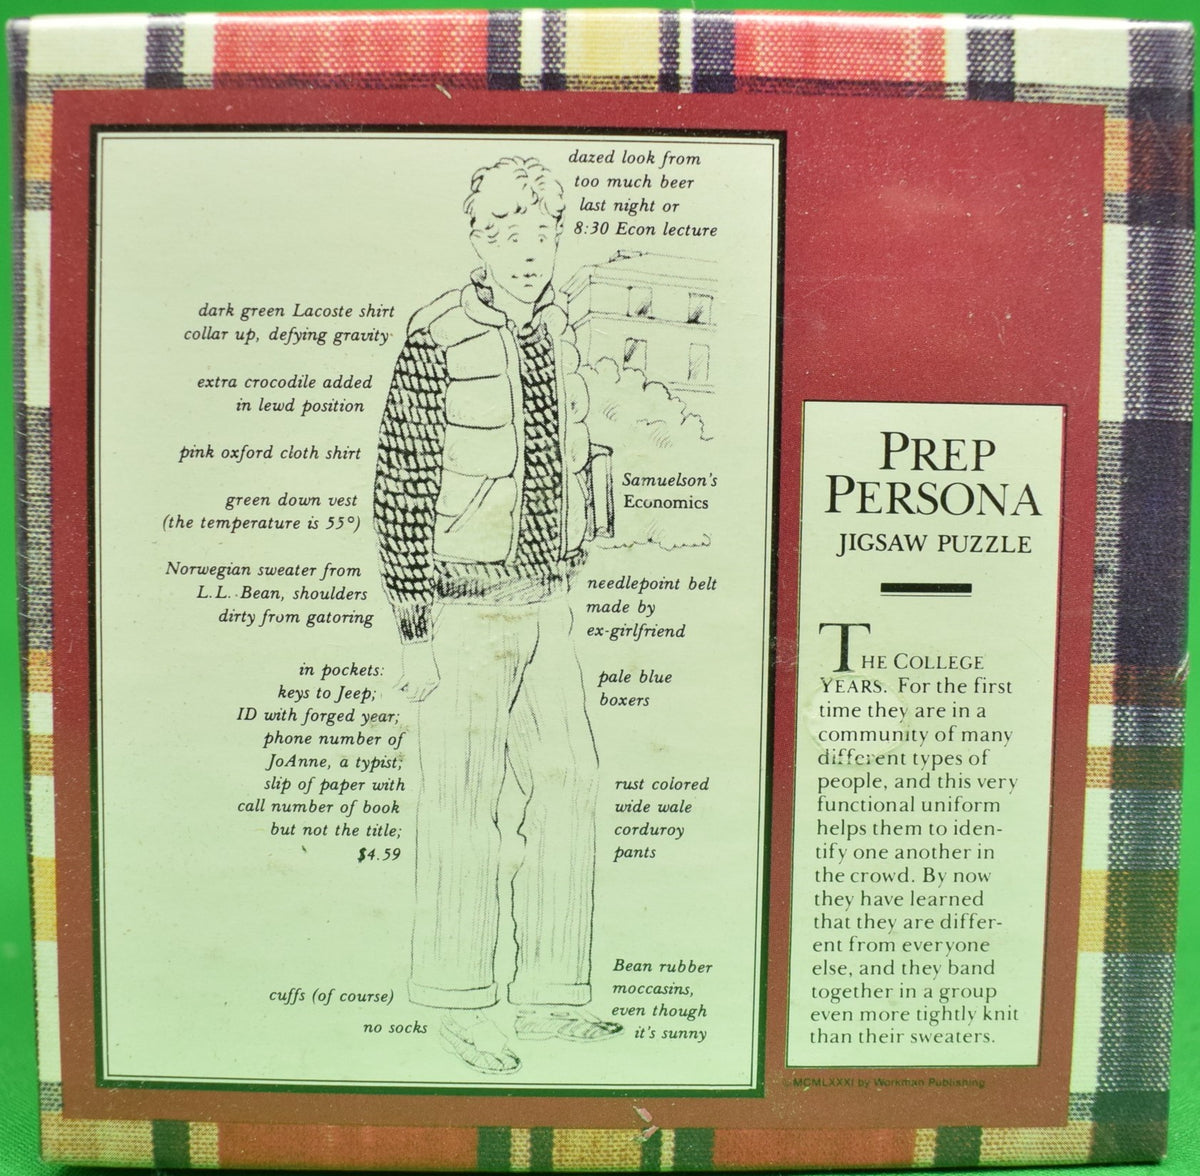 dazed look from
too much beer
last night or
8:30 Econ lecture
dark green Lacoste shirt
collar up, defying gravity
extra crocodile added
in lewd position
pink oxford cloth shirt
green down vest
(the temperature is 55°)
Samuelson's
Economics
Norwegian sweater from
L.L. Bean, shoulders
dirty from gatoring
needlepoint belt
made by
ex-girlfriend
in pockets:
keys to Jeep;
ID with forged year;
phone number of
JoAnne, a typist;
slip of paper with
call number of book
but not the title;
$4.59
pale blue
boxers
rust colored
wide wale
corduroy
pants
cuffs (of course)
no socks
Bean rubber
moccasins,
even though
it's sunny
PREP
PERSONA
JIGSAW PUZZLE
THE COLLEGE
YEARS. For the first
time they are in a
community of many
different types of
people, and this very
functional uniform
helps them to iden-
tify one another in
the crowd. By now
they have learned
that they are differ-
ent from everyone
else, and they band
together in a group
even more tightly knit
than their sweaters.
©MCMLXXXI by Workman Publishing